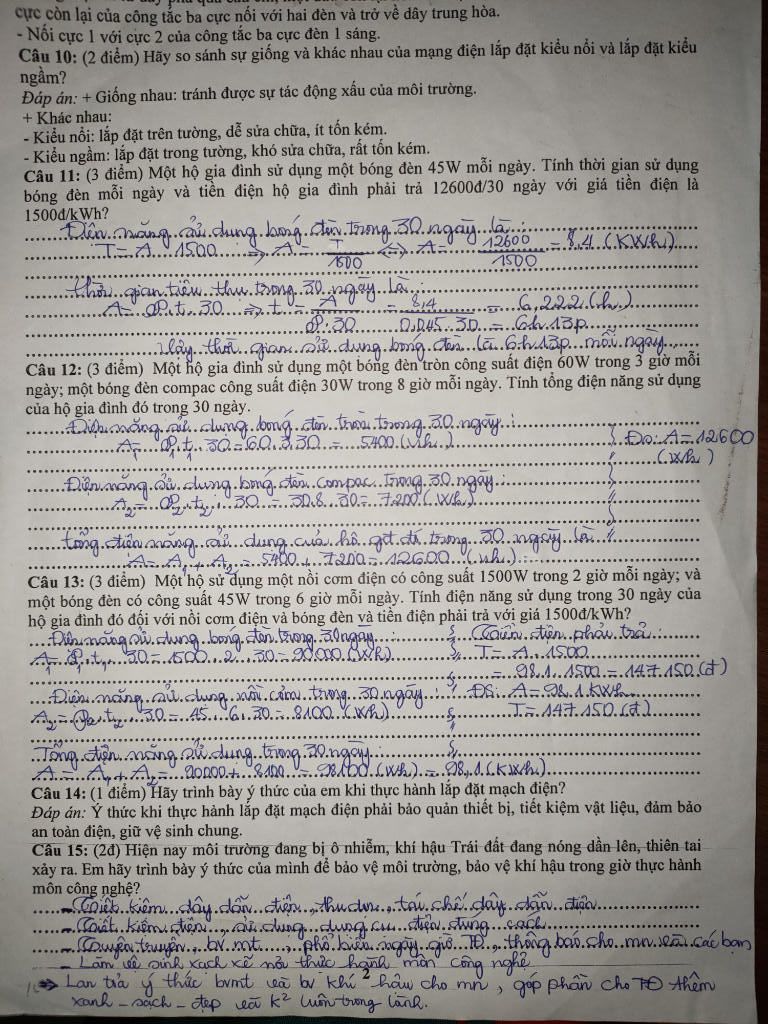 cực còn lại của công tắc ba cực nối với hai đèn và trở về dây trung hòa.
- Nối cực 1 với cực 2 của công tắc ba cực đèn 1 sáng.
Câu 10: (2 điểm) Hãy so sánh sự giống và khác nhau của mạng điện lắp đặt kiểu nổi và lắp đặt kiểu
ngầm?
Đáp án: + Giống nhau: tránh được sự tác động xấu của môi trường.
+ Khác nhau:
- Kiểu nổi: lắp đặt trên tường, dễ sửa chữa, ít tốn kém.
- Kiểu ngầm: lắp đặt trong tường, khó sửa chữa, rất tốn kém.
Câu 11: (3 điểm) Một hộ gia đình sử dụng một bóng đèn 45W mỗi ngày. Tính thời gian sử dụng
bóng đèn mỗi ngày và tiền điện hộ gia đình phải trả 12600đ/30 ngày với giá tiền điện là
1500đ/kWh?
Điện năng sử dụng bóng đèn trong 30 ngày là :
T = A . 1500 => A = T/1500 <=> A = 12600/1500 = 8,4 (KWh)
thời gian tiêu thụ trong 30 ngày là :
A = P. t. 30 => t = A/P.30 = 8,4/0,045.30 = 6,222 (h)
= 6h 13p
Vậy thời gian sử dụng bóng đèn là 6h 13p mỗi ngày
Câu 12: (3 điểm) Một hộ gia đình sử dụng một bóng đèn tròn công suất điện 60W trong 3 giờ mỗi
ngày; một bóng đèn compac công suất điện 30W trong 8 giờ mỗi ngày. Tính tổng điện năng sử dụng
của hộ gia đình đó trong 30 ngày.
Điện năng sử dụng bóng đèn tròn trong 30 ngày :
A1 = P1. t1. 30 = 60. 3. 30 = 5400 (Wh) Đs: A = 12600
(Wh)
Điện năng sử dụng bóng đèn compac trong 30 ngày :
A2 = P2. t2. 30 = 30.8.30 = 7200 (Wh)
tổng điện năng sử dụng của hộ gđ đó trong 30 ngày là
A = A1 + A2 = 5400 + 7200 = 12600 (Wh)
Câu 13: (3 điểm) Một hộ sử dụng một nồi cơm điện có công suất 1500W trong 2 giờ mỗi ngày; và
một bóng đèn có công suất 45W trong 6 giờ mỗi ngày. Tính điện năng sử dụng trong 30 ngày của
hộ gia đình đó đối với nồi cơm điện và bóng đèn và tiền điện phải trả với giá 1500đ/kWh?
Điện năng sử dụng bóng đèn trong 30 ngày : Tiền điện phải trả :
A1 = P1. t1. 30 = 1500. 2. 30 = 90000 (Wh) T = A. 1500
= 98.1. 1500 = 147.150 (đ)
Điện năng sử dụng nồi cơm trong 30 ngày : ĐS: A = 98,1 KWh
A2 = P2. t2. 30 = 45. 6. 30 = 8100 (Wh) T = 147.150 (đ)
Tổng điện năng sử dụng trong 30 ngày :
A = A1 + A2 = 90000 + 8100 = 98100 (Wh) = 98,1 (KWh)
Câu 14: (1 điểm) Hãy trình bày ý thức của em khi thực hành lắp đặt mạch điện?
Đáp án: Ý thức khi thực hành lắp đặt mạch điện phải bảo quản thiết bị, tiết kiệm vật liệu, đảm bảo
an toàn điện, giữ vệ sinh chung.
Câu 15: (2đ) Hiện nay môi trường đang bị ô nhiễm, khí hậu Trái đất đang nóng dần lên, thiên tai
xảy ra. Em hãy trình bày ý thức của mình để bảo vệ môi trường, bảo vệ khí hậu trong giờ thực hành
môn công nghệ?
- Tiết kiệm dây dẫn điện, thu dọn, tái chế dây dẫn điện
- Tiết kiệm điện, sử dụng dụng cụ điện đúng cách
- Tuyên truyền bv mt, phổ biến ngày giờ TĐ, thông báo cho mn và các bạn
- Làm vệ sinh sạch sẽ nơi thức hành môn công nghệ
2
=> Lan tỏa ý thức bvmt và bv khí hậu cho mn, góp phần cho TĐ thêm
xanh - sạch - đẹp và k² luôn trong lành.